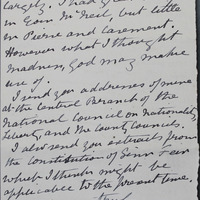 largely. I had g
in Eoin McNeil, but little
in Pierce and Casement.
However what I thought
madness, God may make
use of.
I send you addresses of mine
at the Central Branch of the
National Council on Nationality,
and the County Councils.
I also send you extracts from
the Constitution of Sinn Fein
which I think might be
applicable to the present time.